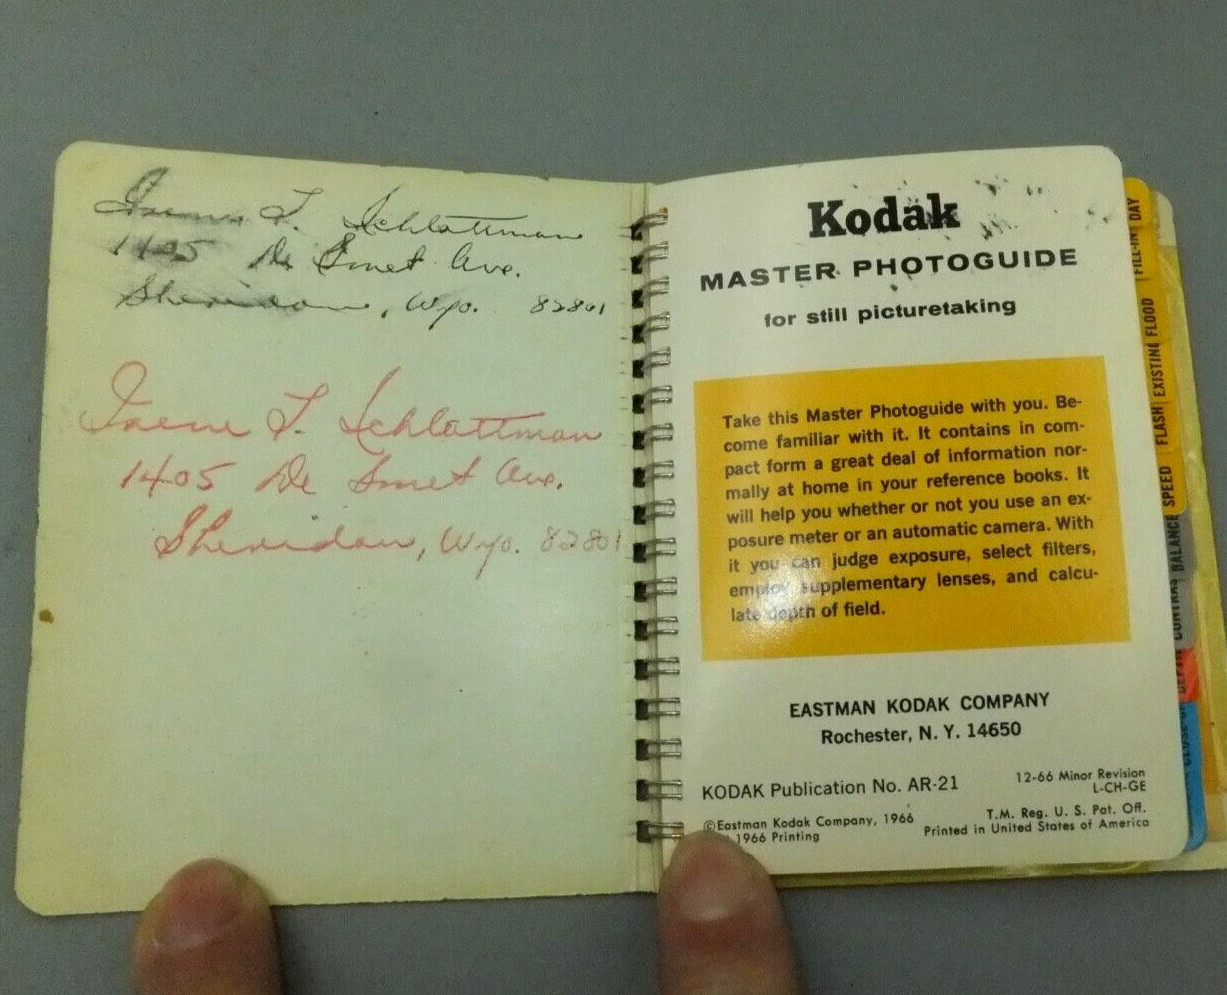 Irene T. Schlattman
1405 De Smet Ave.
Sheridan, Wyo. 82801
Irene T. Schlattman
1405 De Smet Ave.
Sheridan, Wyo. 82801
Kodak
MASTER PHOTOGUIDE
for still picturetaking
Take this Master Photoguide with you. Be-
come familiar with it. It contains in com-
pact form a great deal of information nor-
mally at home in your reference books. It
will help you whether or not you use an ex-
posure meter or an automatic camera. With
it you can judge exposure, select filters,
employ supplementary lenses, and calcu-
late depth of field.
EASTMAN KODAK COMPANY
Rochester, N. Y. 14650
KODAK Publication No. AR-21
12-66 Minor Revision
L-CH-GE
©Eastman Kodak Company, 1966
1966 Printing
T.M. Reg. U. S. Pat. Off.
Printed in United States of America
DAY
FILL-IN
FLOOD
EXISTING
FLASH
SPEED
BALANCE
DEPTH